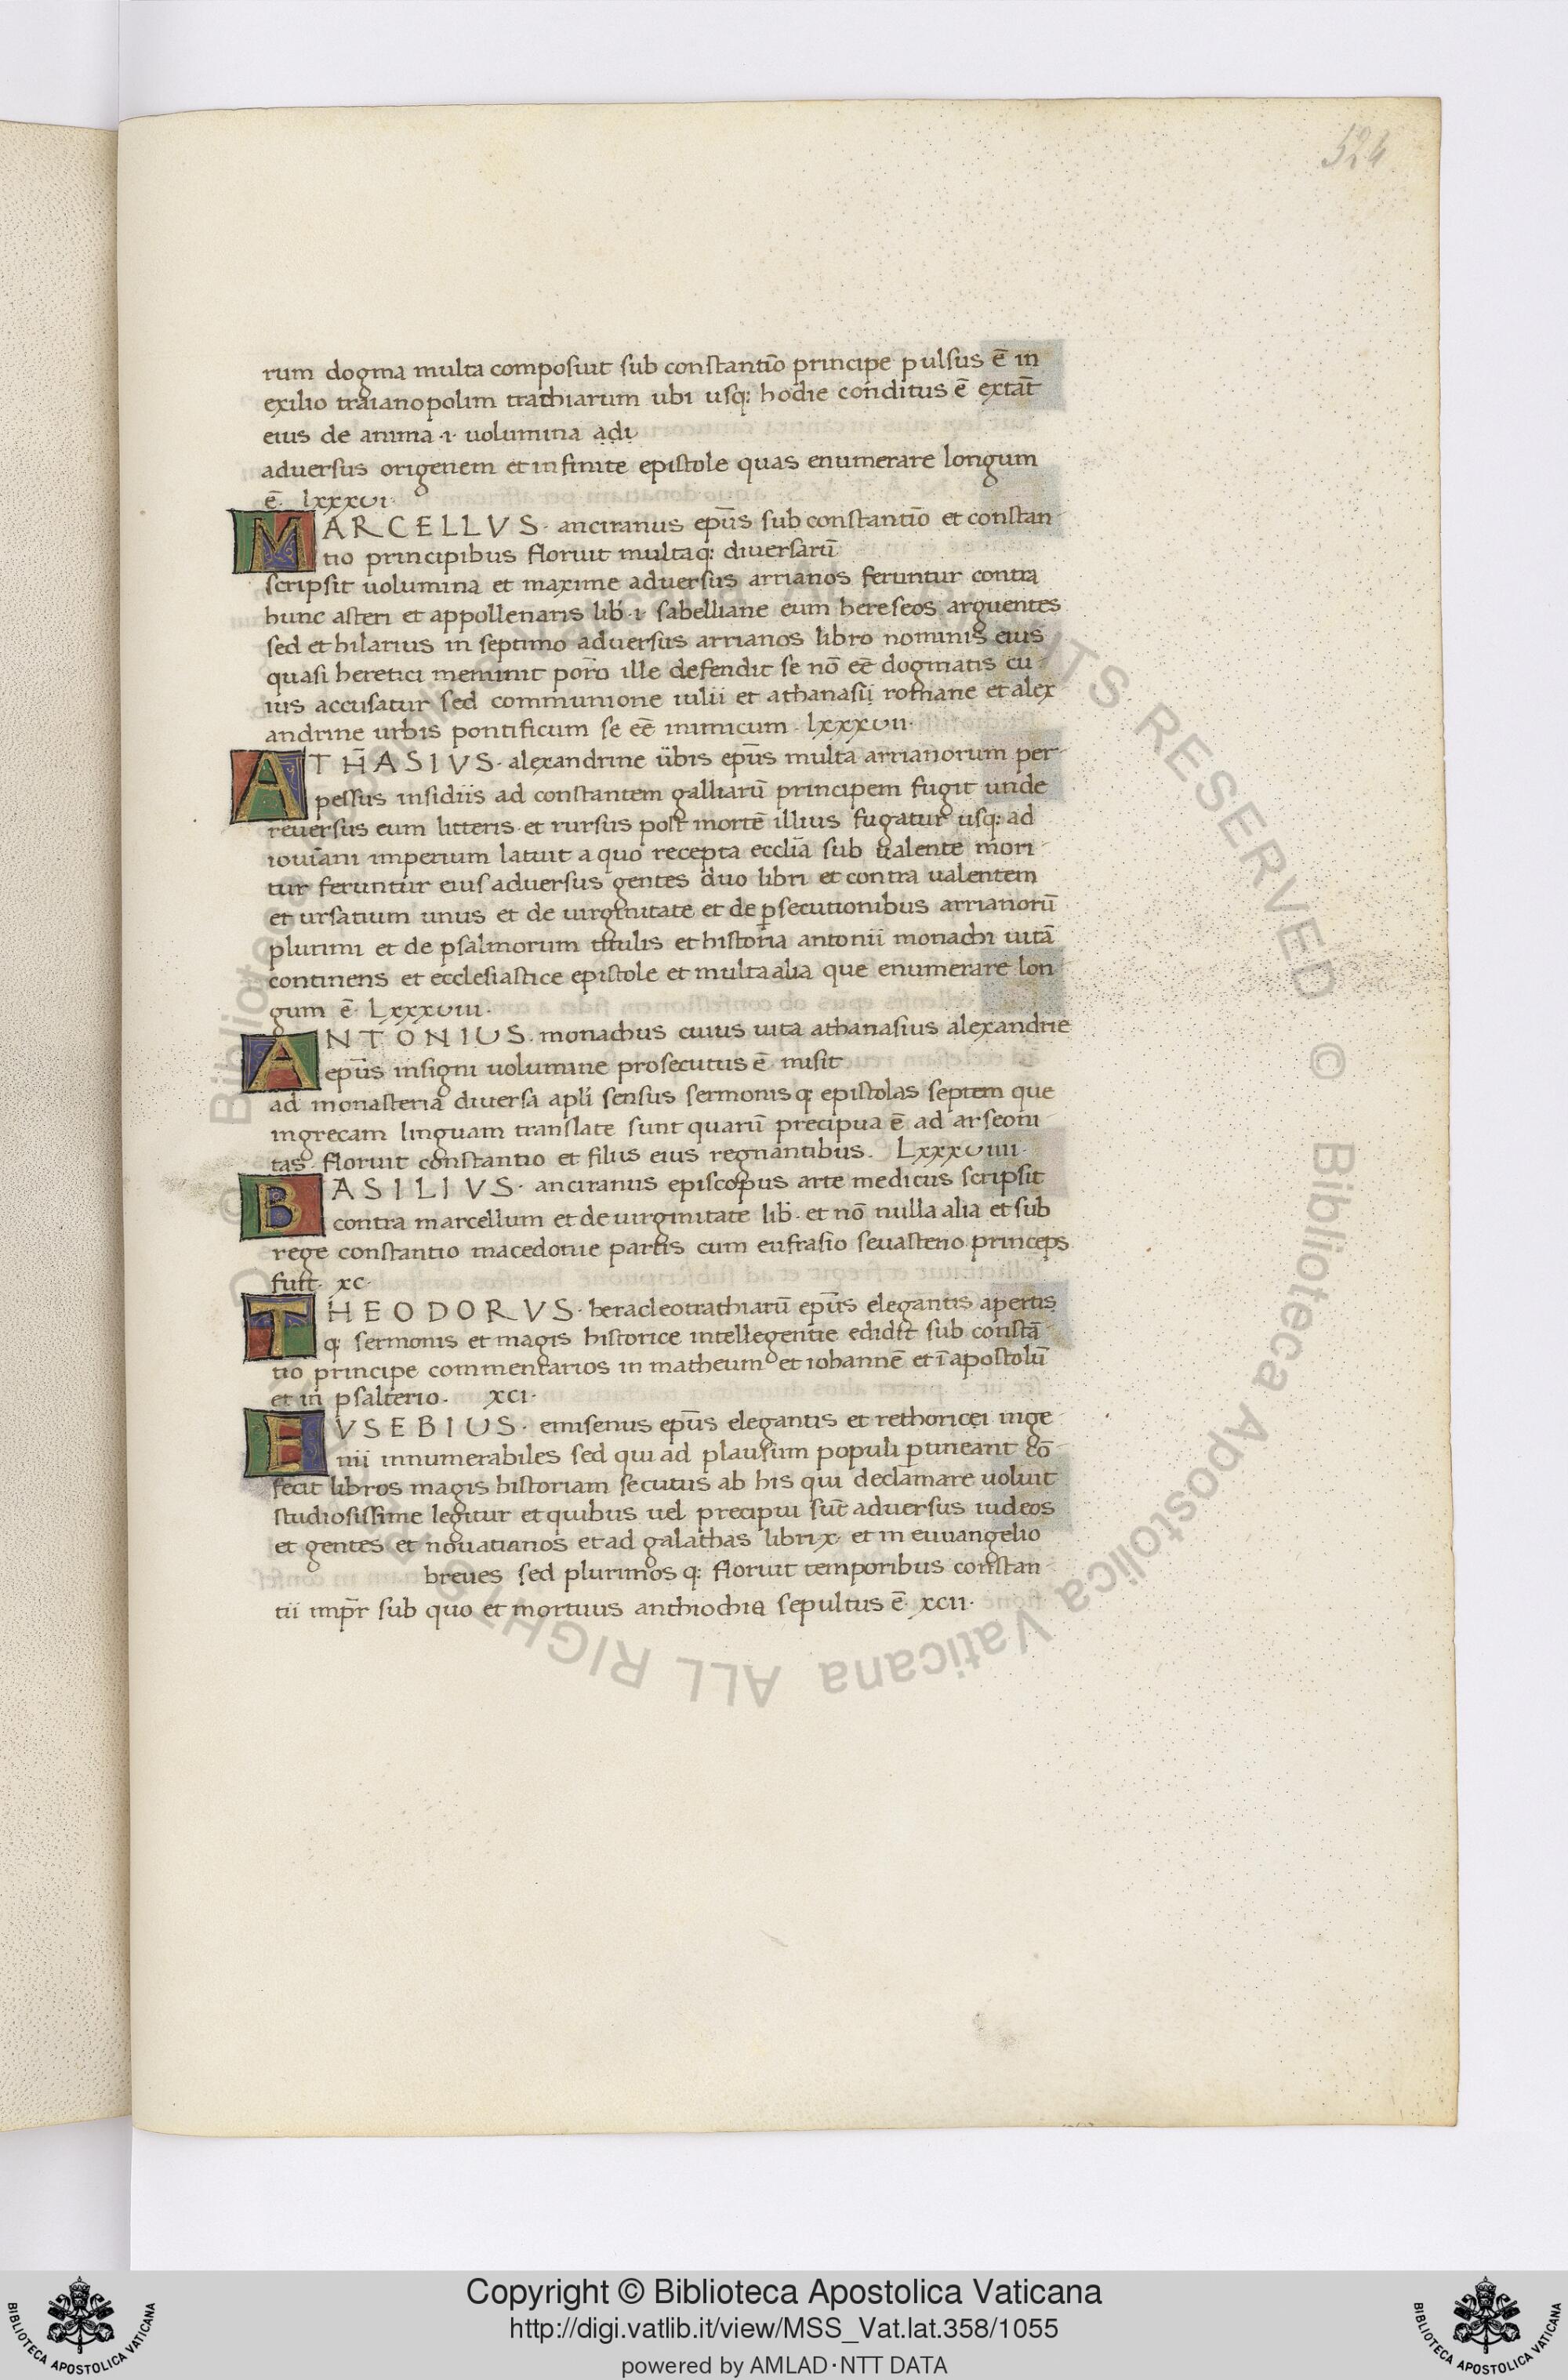 524
rum dogma multa composuit sub constantio principe pulsus ē in
exilio traianopolim trachiarum ubi usq; hodie conditus ē extāt
eius de anima ·i· uolumina adi
adversus origenem et infinite epistole quas enumerare longum
ē· lxxxvi·
MARCELLVS· anciranus ep̄us sub constantio et constan
tio principibus floruit multaq; diuersarū
scripsit uolumina et maxime adversus arrianos feruntur contra
hunc asteri et appollenaris lib· i· sabelliane eum hereseos arguentes
sed et hilarius in septimo adversus arrianos libro nominis eius
quasi heretici meminit porro ille defendit se nō eē dogmatis cu
ius accusatur sed communione iulii et athanasii romane et alex
andrine urbis pontificum se eē inimicum· lxxxvii·
ATHASIVS· alexandrine ūbis ep̄us multa arrianorum per
pessus insidiis ad constantem galliarū principem fugit unde
reuersus eum litteris· et rursus post mortē illius fugatur usq; ad
iouiani imperium latuit a quo recepta ecclīa sub ualente mori
tur feruntur eius adversus gentes duo libri et contra ualentem
et ursatium unus et de uirginitate et de p̱secutionibus arrianorū
plurimi et de psalmorum titulis et historia antonii monachi uitā
continens et ecclesiastice epistole et multa alia que enumerare lon
gum ē· Lxxxviii·
ANTONIUS· monachus cuius uita athanasius alexandrie
ep̄us insigni uolumine prosecutus ē misit
ad monasteria diversa apli sensus sermonis q; epistolas septem que
ingrecam linguam translate sunt quarū precipua ē ad arseoni
tas· floruit constantio et filus eius regnantibus· Lxxxviiii·
BASILIVS· anciranus episcopus arte medicus scripsit
contra marcellum et de uirginitate lib· et nō nulla alia et sub
rege constantio macedonie partis cum eufrasio sevasteno princeps
fuit· xc·
THEODORVS· heracleotrathiarū ep̄us elegantis apertis
q; sermonis et magis historice intellegentie edidit sub constā
tio principe commentarios in matheum et iohannē et ī apostolū
et in psalterio· xci·
EVSEBIUS· emisenus ep̄us elegantis et rethoricei inge
nii innumerabiles sed qui ad plausum populi p̱tineant
fecit libros magis historiam secutus ab his qui declamare uoluit
studiosissime legitur et quibus uel precipui sūt adversus iudeos
et gentes et novatianos et ad galathas libri x· et in euuangelio
breues sed plurimos q; floruit temporibus constan
tii imp̄r sub quo et mortuus anthiochia sepultus ē· xcii·
© Biblioteca Apostolica Vaticana ALL RIGHTS RESERVED
Copyright © Biblioteca Apostolica Vaticana
http://digi.vatlib.it/view/MSS_Vat.lat.358/1055
powered by AMLAD·NTT DATA
BIBLIOTECA APOSTOLICA VATICANA
BIBLIOTECA APOSTOLICA VATICANA